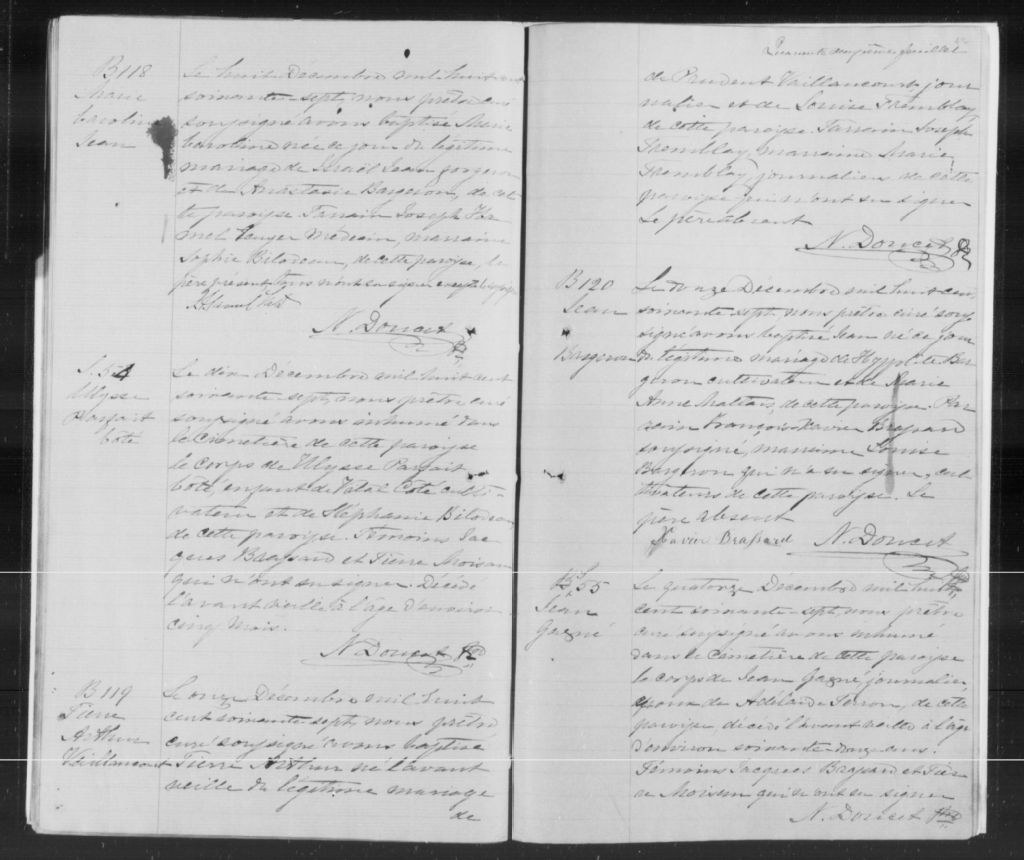 B118
Marie
Caroline
Jean
Le huit Décembre mil huit cent
soixante-sept, nous prêtre curé
soussigné avons baptisé Marie
Caroline née ce jour du légitime
mariage de Israël Jean forgeron
et de Anastasie Bargeron, de cet-
te paroisse Parrain Joseph
Médecin, marraine
Sophie Bilodeau, de cette paroisse, le
père présent
N. Doucet Ptre
S. 54
Ulysse
Parfait
Coté
Le dix Décembre mil huit cent
soixante sept, nous prêtre curé
soussigné avons inhumé dans
le cimetière de cette paroisse
le corps de Ulysse Parfait
Coté, enfant de Coté culti-
vateur et de Stéphanie Bilodeau
de cette paroisse. Témoins Jac-
ques Brassard et Pierre Moisan
qui n'ont su signer. Décédé
l'avant veille à l'âge d'environ
cinq mois.
N. Doucet Ptre
B119
Pierre
Arthur
Vaillancourt
Le onze Décembre mil huit
cent soixante sept, nous prêtre
curé soussigné avons baptisé
Pierre Arthur né l'avant
veille du légitime mariage
de
Quarante deuxième feuillet
de Prudent Vaillancourt, jour
nalier et de Louise Tremblay
de cette paroisse. Parrain Joseph
Tremblay, marraine Marie
Tremblay, journaliers de cette
paroisse qui n'ont su signer
Le père absent
N. Doucet Ptre
B120
Jean
Bargeron
Le Décembre mil huit cent
soixante sept, nous prêtre curé sous-
signé avons baptisé Jean né ce jour
du légitime mariage de Hyppolite Bar-
geron cultivateur et de Marie
Anne Maltais, de cette paroisse. Par-
rain François Xavier Brassard
soussigné, marraine Louise
Bargeron qui n'a su signer, cul-
tivateurs de cette paroisse. Le
père absent
Xavier Brassard N. Doucet
Ptre
S. 55
Jean
Gagné
Le quatorze Décembre mil huit
cent soixante-sept, nous prêtre
curé soussigné avons inhumé
dans le cimetière de cette paroisse
le corps de Jean Gagné, journalier
époux de Adélaïde, de cette
paroisse, décédé l'avant veille à l'âge
d'environ soixante-douze ans.
Témoins Jacques Brassard et Pier-
re Moisan qui n'ont su signer
N. Doucet Ptre